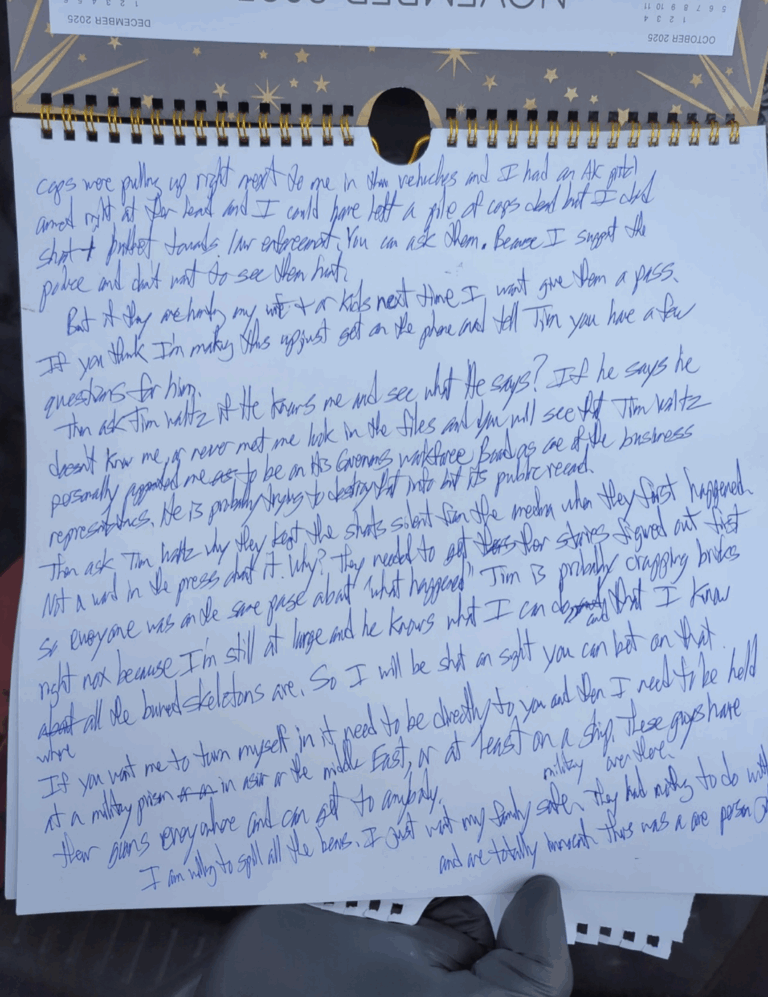 OCTOBER 2025
NOVEMBER
DECEMBER 2025
cops were pulling up right next to me in their vehicles and I had an AK pistol
aimed right at their head and I could have left a pile of cops dead but I didnt
shoot 1 bullet towards law enforcement. You can ask them. Because I support the
police and dont want to see them hurt.
But if they are hurting my wife + or kids next time I wont give them a pass.
If you think I'm making this up just get on the phone and tell Tim you have a few
questions for him.
Then ask Tim waltz if He knows me and see what He says? If he says he
doesnt know me, or never met me look in the files and you will see that Tim waltz
personally appointed me to be on His Governors workforce Board as one of the business
representatives. He is probably trying to destroy that info but its public record.
Then ask Tim waltz why they kept the shots silent from the media when they first happened.
Not a word in the press about it. Why? They needed to get their stories figured out first
so everyone was on the same page about "what happened" Tim is probably crapping bricks
right now because I'm still at large and he knows what I can do and that I know
where all the buried skeletons are. So I will be shot on sight you can bet on that.
If you want me to turn myself in it need to be directly to you and then I need to be held
at a military prison in asia or the middle East, or at least on a military ship over there. These guys have
their goons everywhere and can get to anybody.
I am willing to spill all the beans. I Just want my family safe. They had nothing to do with
and are totally innocent this was a one person